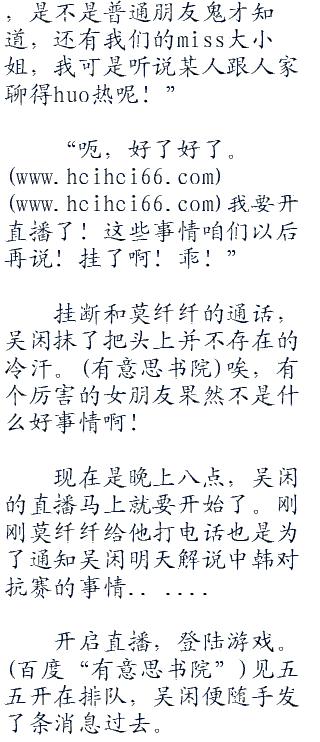 ，是不是普通朋友鬼才知
道，还有我们的miss大小
姐，我可是听说某人跟人家
聊得huo热呢！”
“呃，好了好了。
(www.hcihci66.com)
(www.hcihci66.com)我要开
直播了！这些事情咱们以后
再说！挂了啊！乖！”
挂断和莫纤纤的通话，
吴闲抹了把头上并不存在的
冷汗。(有意思书院)唉，有
个厉害的女朋友果然不是什
么好事情啊！
现在是晚上八点，吴闲
的直播马上就要开始了。刚
刚莫纤纤给他打电话也是为
了通知吴闲明天解说中韩对
抗赛的事情.. ....
开启直播，登陆游戏。
(百度“有意思书院”)见五
五开在排队，吴闲便随手发
了条消息过去。